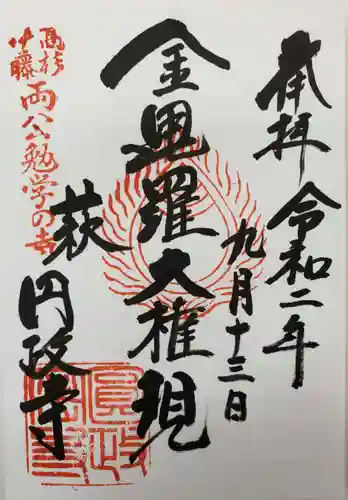 奉拝
令和二年
九月十三日
金毘羅大権現
萩
円政寺
高杉
伊藤
両公勉学の寺
圓政寺